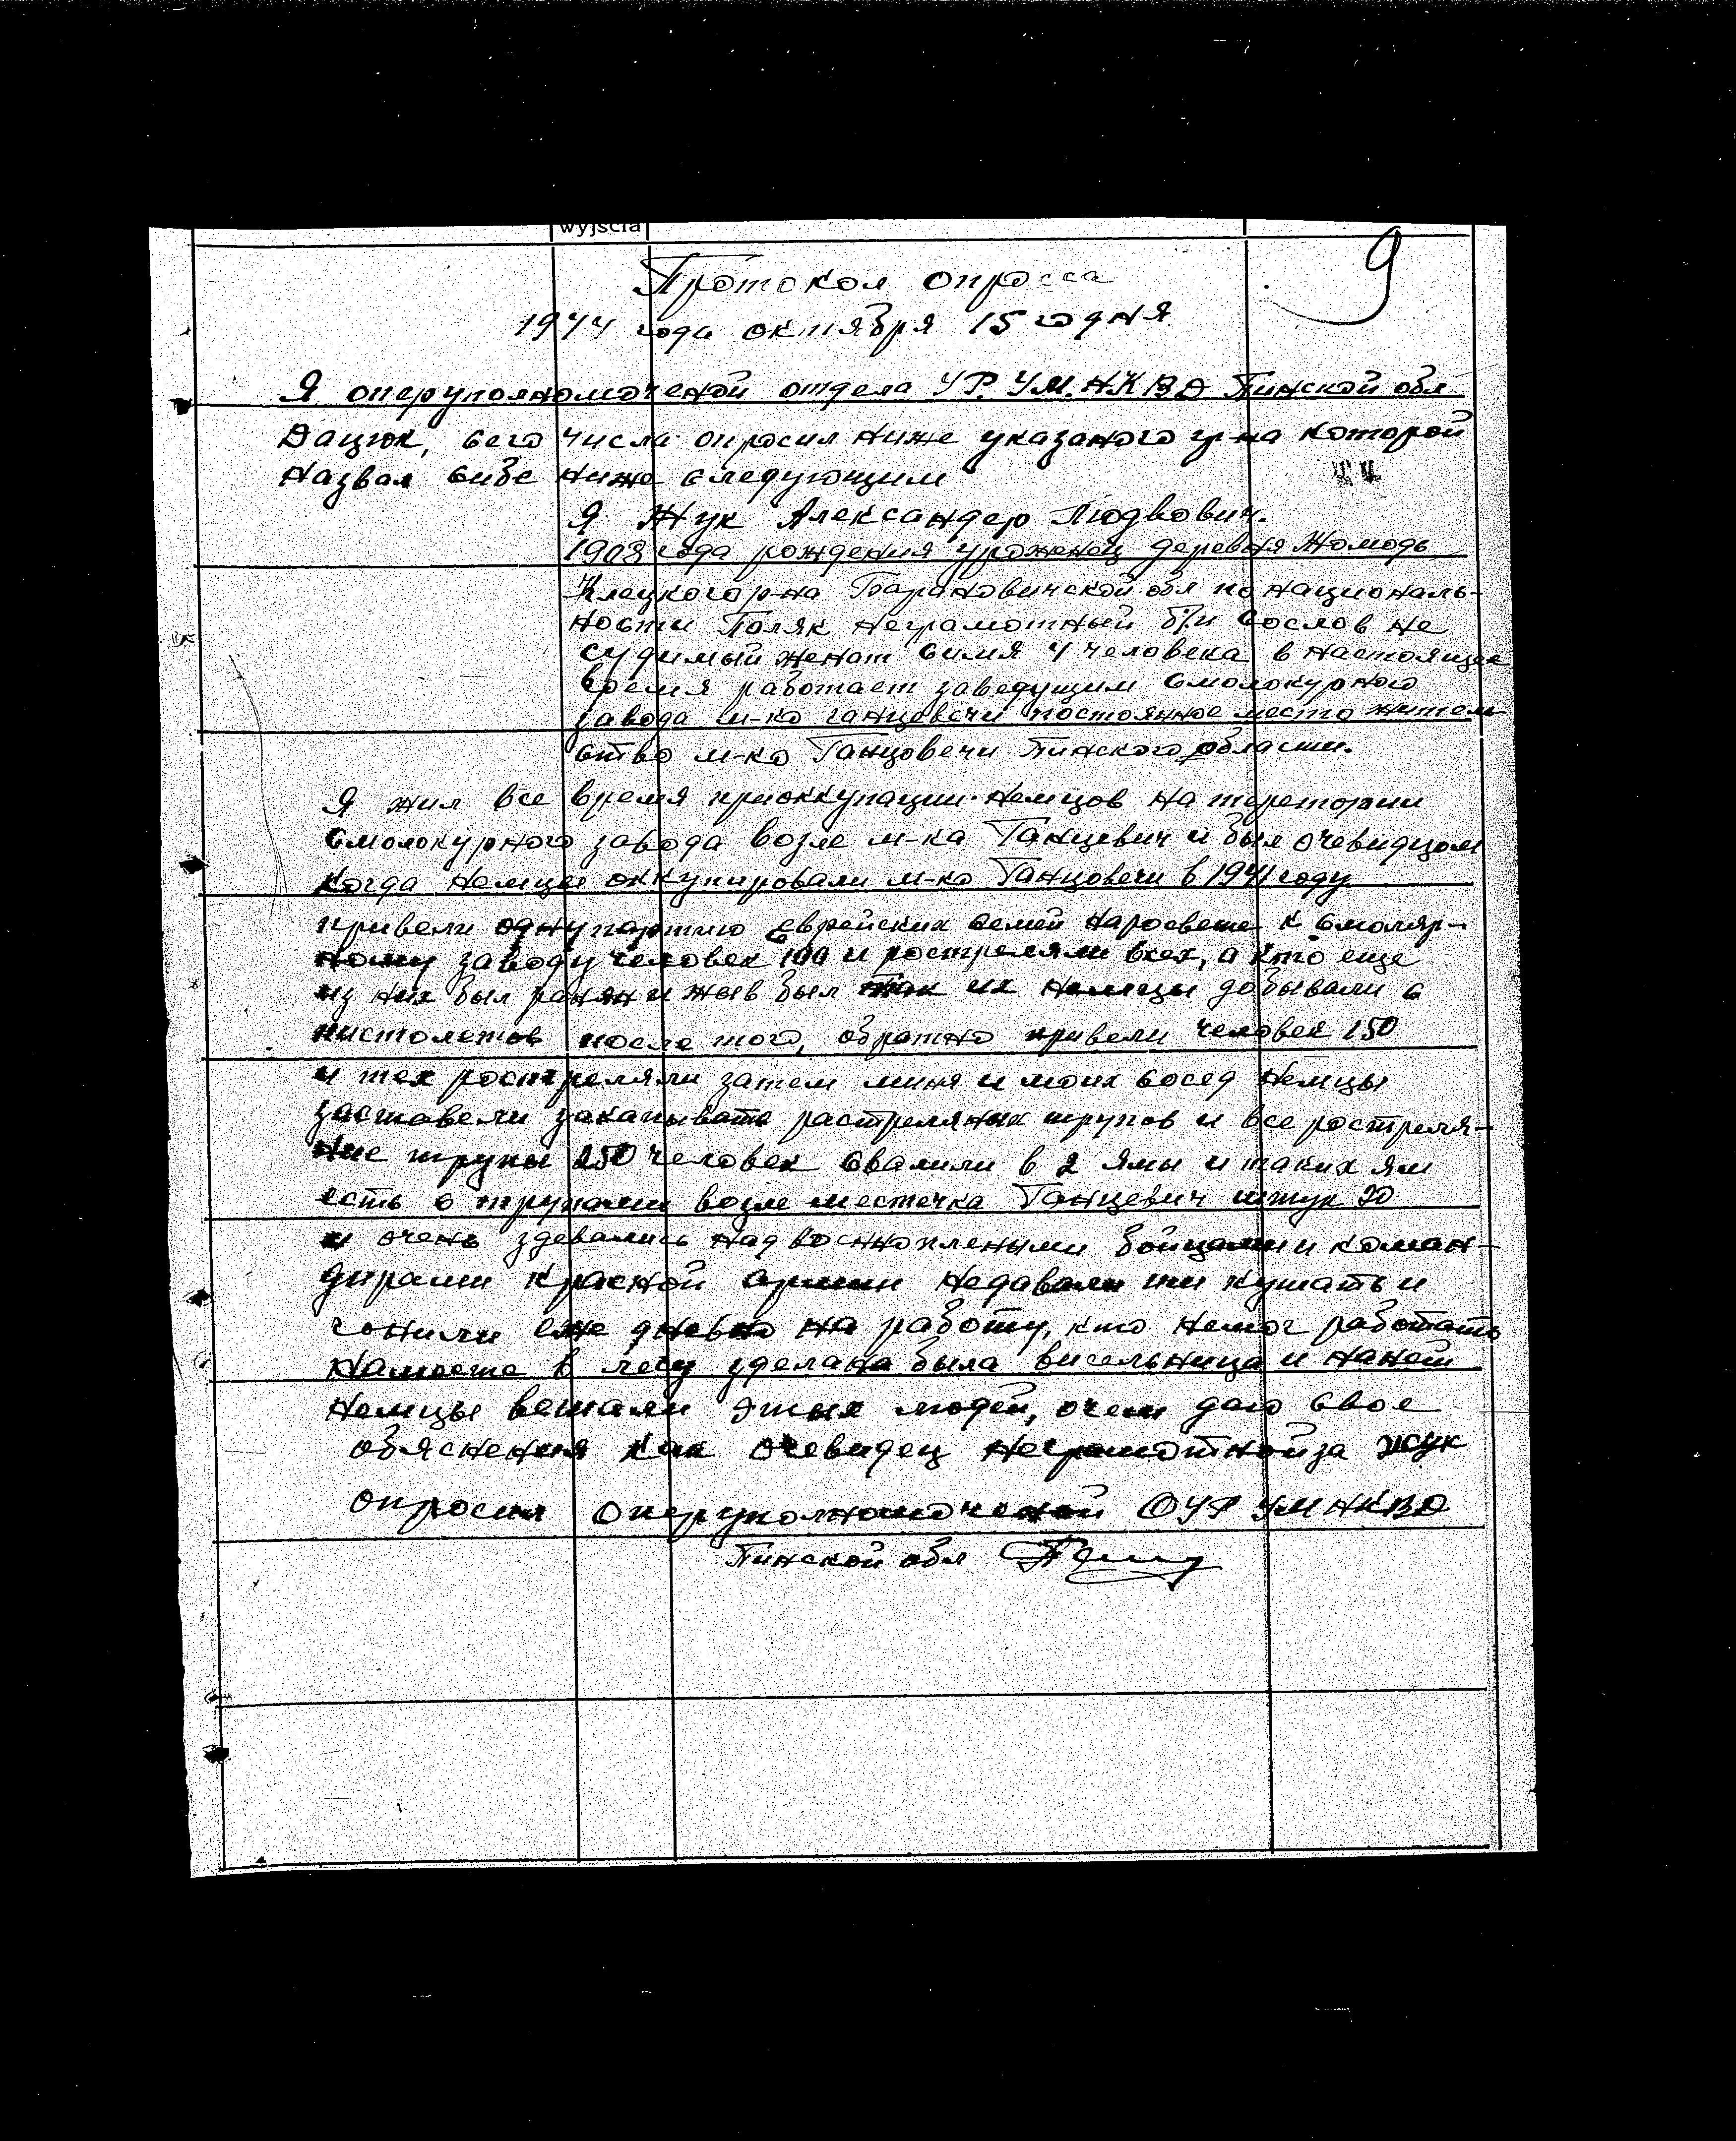 wyjścia
9
Протокол опросса
1944 года октября 15 го дня
Я оперуполномоченой отдела УР. УМ. НКВД Пинской обл.
Дацюк, сего числа опросил ниже указаного гр-на которой
назвал сибе ниже следующим
Я Жук Александер Людвович.
1908 года рождения уроженец деревня Жомодь
Клецкого р-на Барановичской обл по националь-
ности Поляк неграмотный б/п сослов не
судимый женат симя 4 человека в настоящее
время работает заведущим смолокурного
завода м-ко ганцевечи постоянное место житель-
ство м-ко Ганцовечи Пинского области.
Я жил все время приоккупации немцов на теретории
смолокурного завода возле м-ка Ганцевич и был очевидцом
когда немцы оккупировали м-ко Ганцовечи в 1941 году
привели одну партию еврейских семей наросвете к смоляр-
ному заводу человек 100 и рострелями всех, а кто еще
из них был ранян и жыв был так их немцы добывали с
пистолетов после того, обратно привели человек 150
и тех рострелями затем миня и моих сосед немцы
заставели закапывать растреляних трупов и все рострэля-
ние трупы 250 человек свалили в 2 ямы и таких ям
есть с трупами возле местечка Ганцевич штук 20
и очень здевались над военноплеными бойцами и коман-
дирами красной армии недавали ми кушать и
гонили еже дневно на работу, кто немог работать
наместе в лесу зделана была висельница и наней
немцы вешали этых людей, очем даю свое
обясненя как очевидец неграмотной за жук
опросил Оперуполномоченой ОУР УМ НКВД
Пинской обл